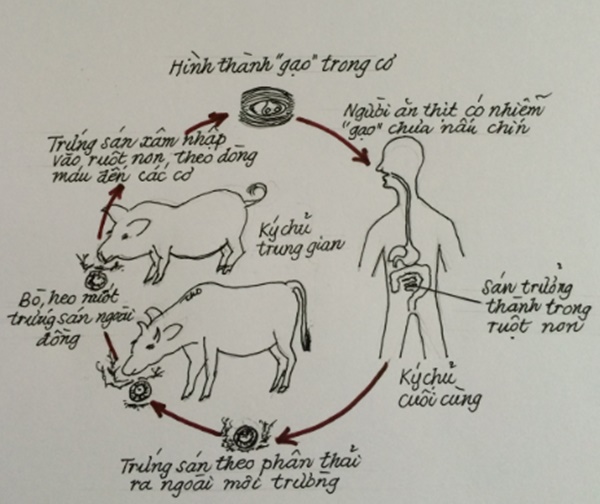 Hình thành "gạo" trong cơ
Người ăn thịt có nhiễm
"gạo" chưa nấu chín
Trứng sán xâm nhập
vào ruột non, theo dòng
máu đến các cơ
Ký chủ
trung gian
Bò, heo nuốt
trứng sán ngoài
đồng
Sán trưởng
thành trong
ruột non
Ký chủ
cuối cùng
Trứng sán theo phân thải
ra ngoài môi trường